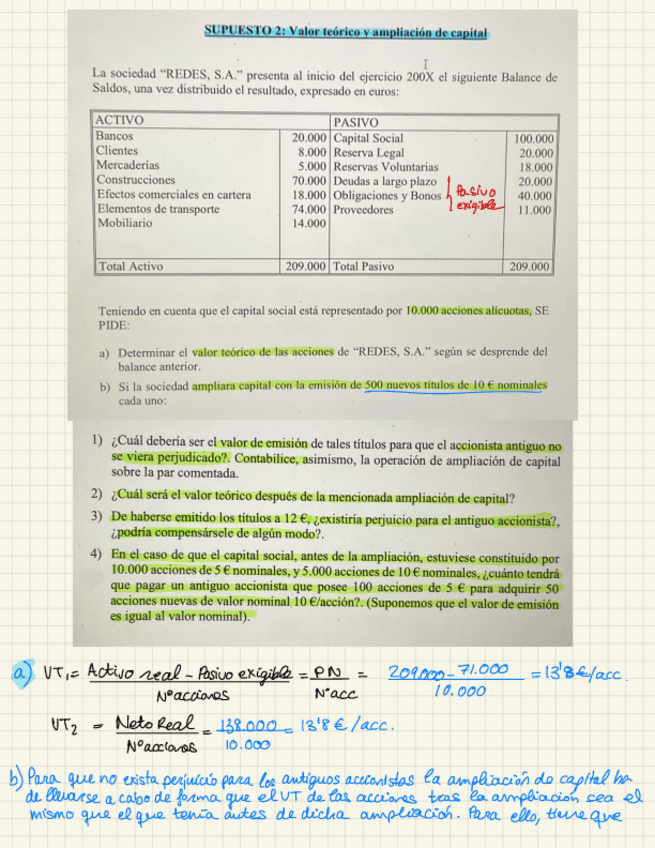 SUPUESTO 2: Valor teórico y ampliación de capital
La sociedad “REDES, S.A.” presenta al inicio del ejercicio 200X el siguiente Balance de
Saldos, una vez distribuido el resultado, expresado en euros:
ACTIVO PASIVO
Bancos 20.000 Capital Social 100.000
Clientes 8.000 Reserva Legal 20.000
Mercaderías 5.000 Reservas Voluntarias 18.000
Construcciones 70.000 Deudas a largo plazo 20.000
Efectos comerciales en cartera 18.000 Obligaciones y Bonos 40.000
Elementos de transporte 74.000 Proveedores 11.000
Mobiliario 14.000
Pasivo
exigible
Total Activo 209.000 Total Pasivo 209.000
Teniendo en cuenta que el capital social está representado por 10.000 acciones alícuotas, SE
PIDE:
a) Determinar el valor teórico de las acciones de “REDES, S.A.” según se desprende del
balance anterior.
b) Si la sociedad ampliara capital con la emisión de 500 nuevos títulos de 10 € nominales
cada uno:
1) ¿Cuál debería ser el valor de emisión de tales títulos para que el accionista antiguo no
se viera perjudicado?. Contabilice, asimismo, la operación de ampliación de capital
sobre la par comentada.
2) ¿Cuál será el valor teórico después de la mencionada ampliación de capital?
3) De haberse emitido los títulos a 12 €, ¿existiría perjuicio para el antiguo accionista?,
¿podría compensársele de algún modo?.
4) En el caso de que el capital social, antes de la ampliación, estuviese constituido por
10.000 acciones de 5 € nominales, y 5.000 acciones de 10 € nominales, ¿cuánto tendrá
que pagar un antiguo accionista que posee 100 acciones de 5 € para adquirir 50
acciones nuevas de valor nominal 10 €/acción?. (Suponemos que el valor de emisión
es igual al valor nominal).
a) VT1 = Activo real - Pasivo exigible = PN = 209.000 - 71.000 = 13'8 €/acc.
Nº acciones Nº acc 10.000
VT2 = Neto Real = 138.000 = 13'8 € /acc.
Nº acciones 10.000
b) Para que no exista perjuicio para los antiguos accionistas la ampliación de capital ha
de llevarse a cabo de forma que el VT de las acciones tras la ampliación sea el
mismo que el que tenía antes de dicha ampliación. Para ello, tiene que